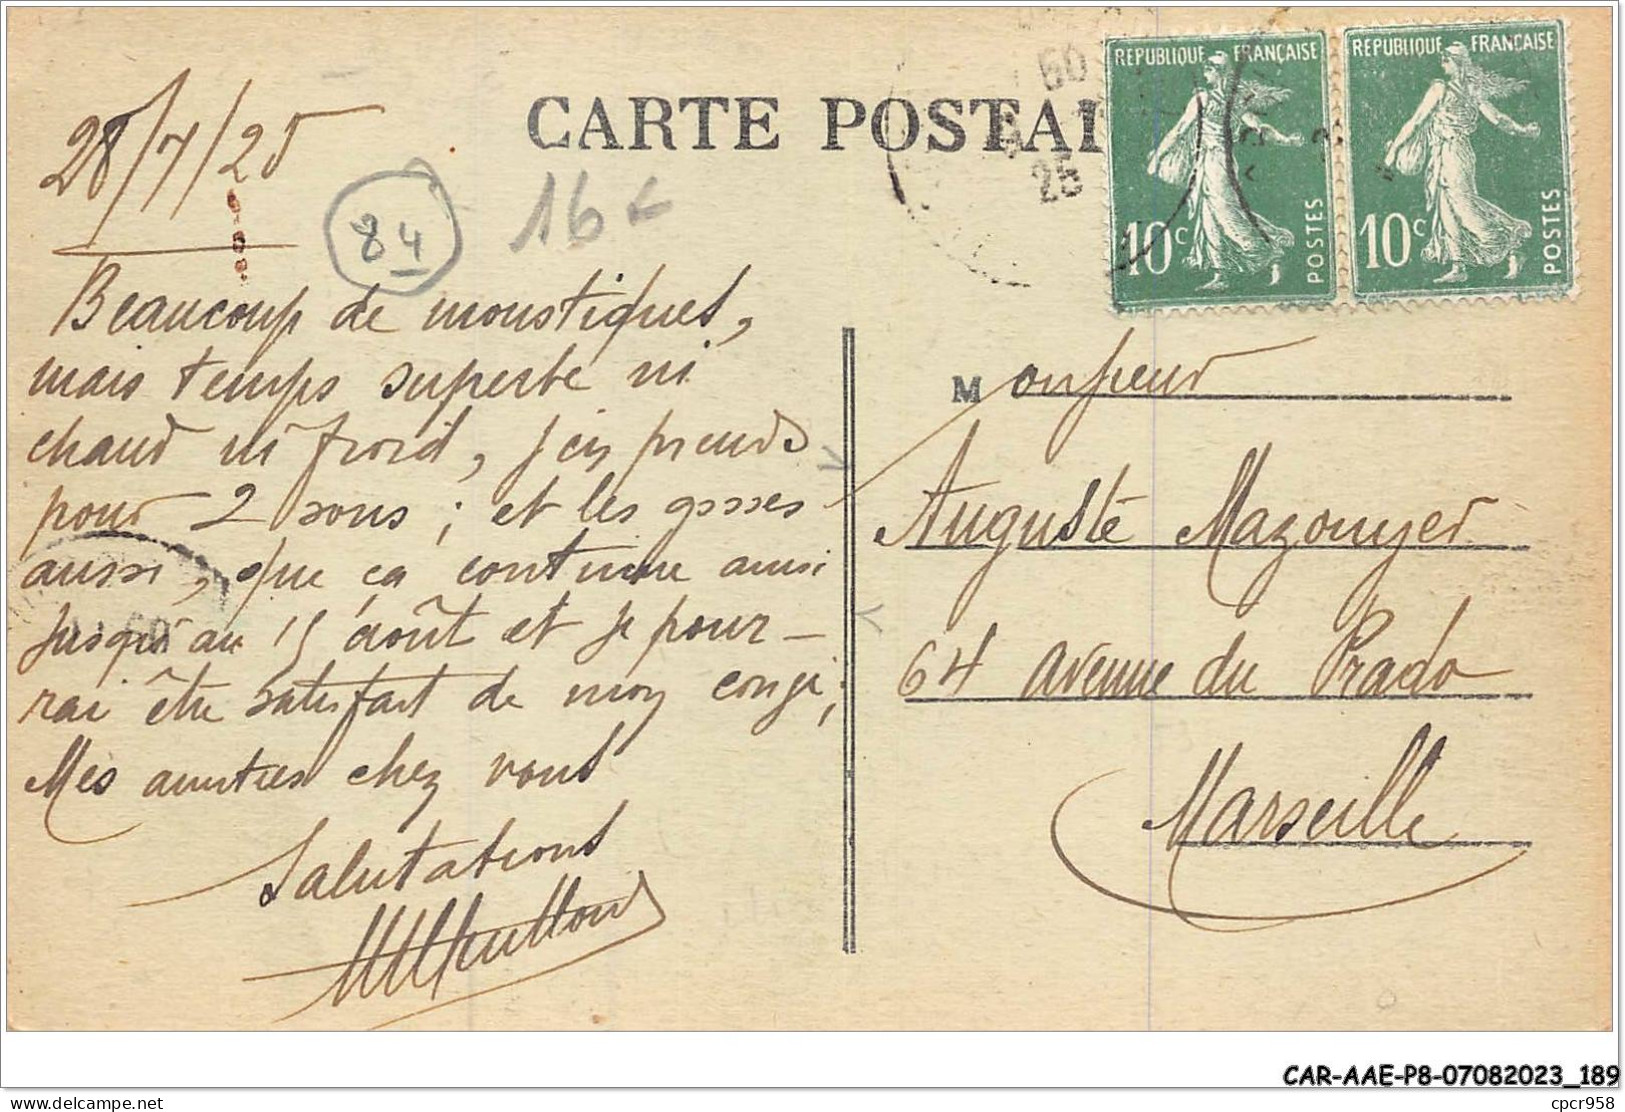 CARTE POSTAL
REPUBLIQUE FRANÇAISE
10c
POSTES
REPUBLIQUE FRANÇAISE
10c
POSTES
60
25
28/7/25
84
16
Beaucoup de moustiques,
mais temps superbe ni
chaud ni froid, j'en prends
pour 2 sous ; et les gosses
aussi, que ça continue ainsi
jusqu'au 15 août et je pour-
rai être satisfait de mon congé;
Mes amitiés chez vous
Salutations
Monsieur
Auguste Mazouyer
64 Avenue du Prado
Marseille
CAR-AAE-P8-07082023_189
delcampe.net
cpcr958